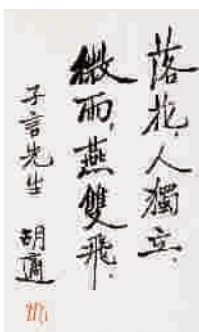 落花，人獨立，
微雨，燕雙飛．
子言先生　胡適